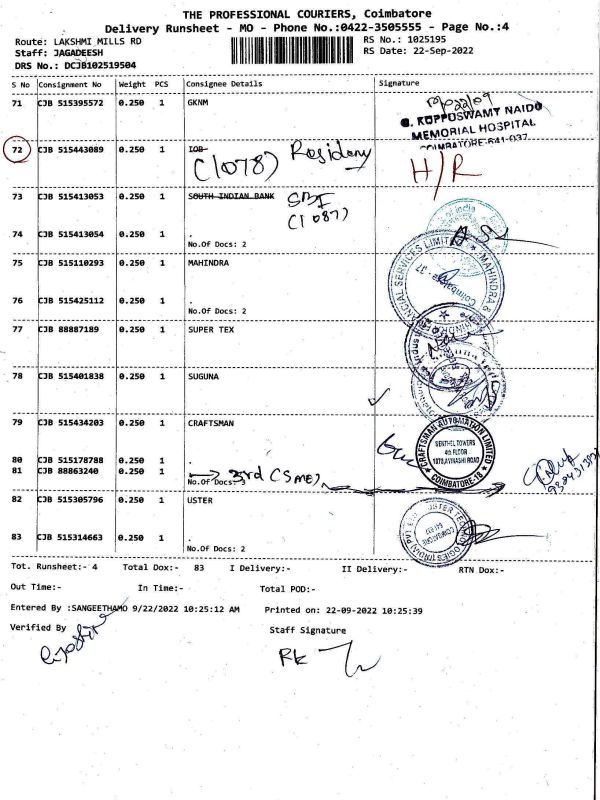 THE PROFESSIONAL COURIERS, Coimbatore
Delivery Runsheet - MO - Phone No.:0422-3505555 - Page No.:4
Route: LAKSHMI MILLS RD
RS No.: 1025195
Staff: JAGADEESH
RS Date: 22-Sep-2022
DRS No.: DCJB102519504
S No Consignment No Weight PCS Consignee Details Signature
71 CJB 515395572 0.250 1 GKNM
22/09
G. KUPPUSWAMY NAIDU
MEMORIAL HOSPITAL
COIMBATORE-641-037
72 CJB 515443089 0.250 1 IOB Residency
(1078)
H/R
73 CJB 515413053 0.250 1 SOUTH INDIAN BANK SBI
(1087)
74 CJB 515413054 0.250 1 .
No.Of Docs: 2
75 CJB 515110293 0.250 1 MAHINDRA
76 CJB 515425112 0.250 1 .
No.Of Docs: 2
77 CJB 88887189 0.250 1 SUPER TEX
78 CJB 515401838 0.250 1 SUGUNA
79 CJB 515434203 0.250 1 CRAFTSMAN
CRAFTSMAN AUTOMATION LIMITED
SENTHEL TOWERS
4th FLOOR
1078,AVINASHI ROAD
COIMBATORE-18
80 CJB 515178788 0.250 1 .
81 CJB 88863240 0.250 1 3rd (SME)
No.Of Docs: 3
82 CJB 515305796 0.250 1 USTER
83 CJB 515314663 0.250 1 .
No.Of Docs: 2
Tot. Runsheet:- 4 Total Dox:- 83 I Delivery:- II Delivery:- RTN Dox:-
Out Time:- In Time:- Total POD:-
Entered By :SANGEETHAMO 9/22/2022 10:25:12 AM Printed on: 22-09-2022 10:25:39
Verified By Staff Signature
RK